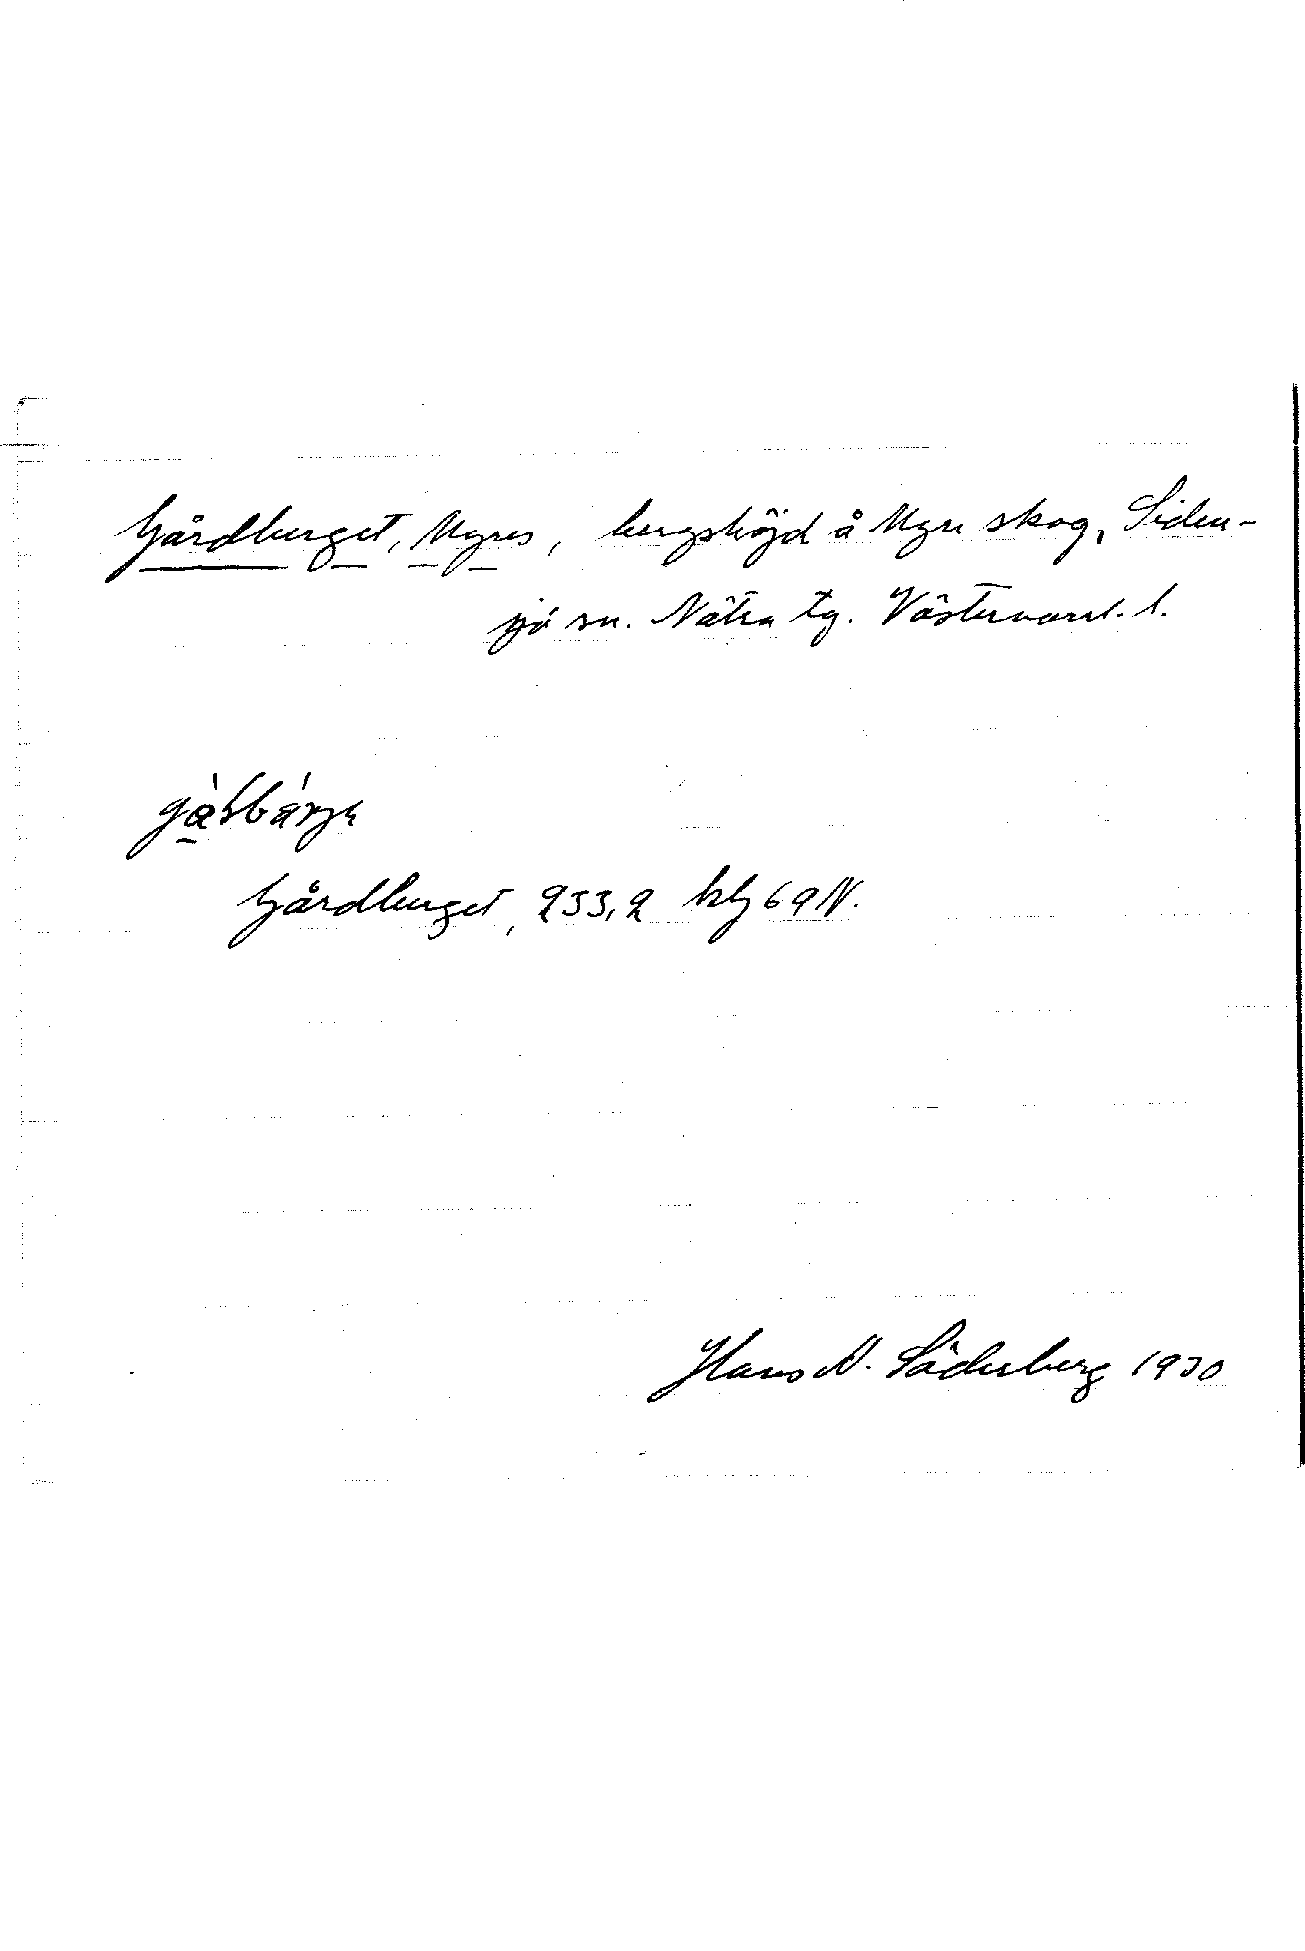 Gårdberget, Myres, bergshöjd å Myre skog, Siden-
sjö sn. Nätra tg. Västernorrl. l.
Gårdberget, 233,2 kbl 69 N.
Hans N. Söderberg 1930